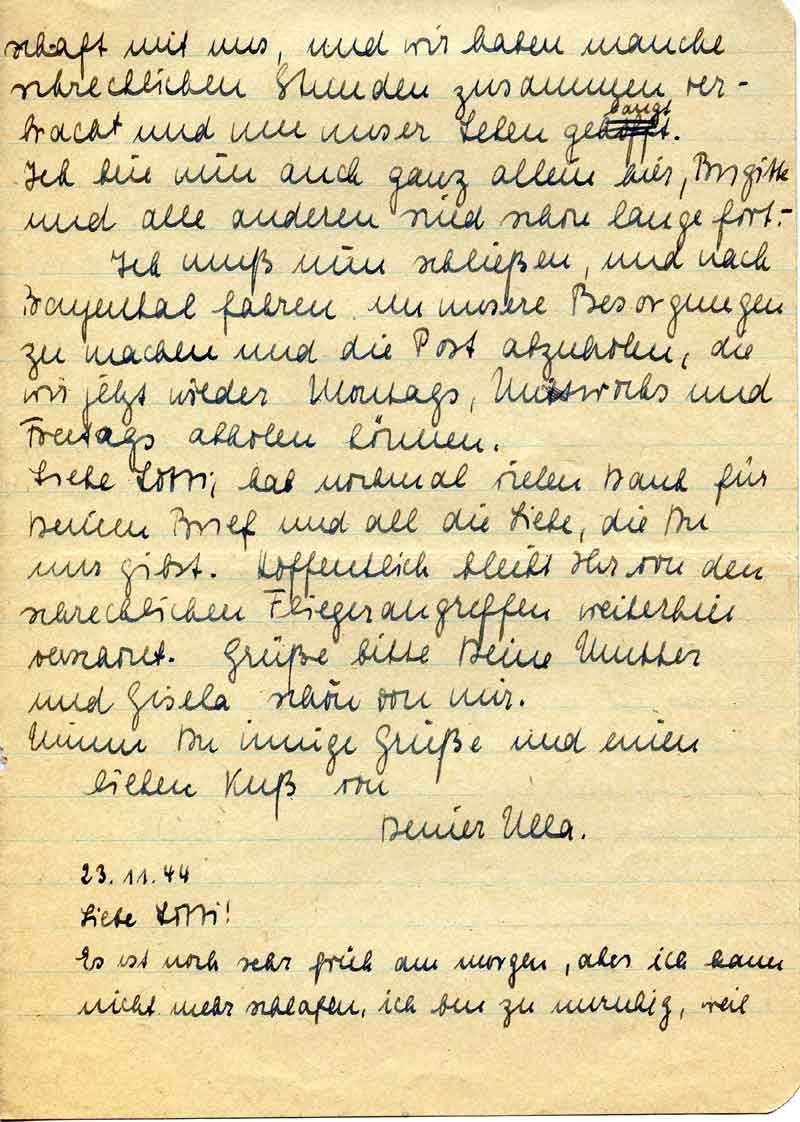 schaft mit uns, und wir haben manche
schrecklichen Stunden zusammen ver-
bracht und um unser Leben gehofft. bangt
Ich bin nun auch ganz allein hier, Brigitte
und alle anderen sind schon lange fort.-
Ich muß nun schließen, und nach
Bayenthal fahren um unsere Besorgungen
zu machen und die Post abzuholen, die
wir jetzt wieder Montags, Mittwochs und
Freitags abholen können.
Liebe Lotti, hab nochmal vielen Dank für
Deinen Brief und all die Liebe, die Du
uns gibst. Hoffentlich bleibt Ihr von den
schrecklichen Fliegerangreffen weiterhin
verschont. Grüße bitte Deine Mutter
und Gisela schön von mir.
Nimm Du innige Grüße und einen
lieben Kuß von
Deiner Ulla.
23.11.44
Liebe Lotti!
Es ist noch sehr früh am morgen, aber ich kann
nicht mehr schlafen, ich bin zu unruhig, weil